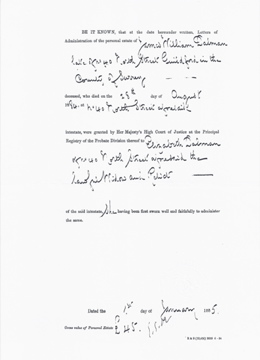 BE IT KNOWN, that at the date hereunder written, Letters of
Administration of the personal estate of James William
late of No 40 North Street Guildford in the
County of Surrey
deceased, who died on the 28th day of August
at No 40 North Street aforesaid
intestate, were granted by Her Majesty's High Court of Justice at the Principal
Registry of the Probate Division thereof to Elizabeth
of No 40 North Street aforesaid the
lawful Widow and Relict
of the said intestate, She having been first sworn well and faithfully to administer
the same.
Dated the 1st day of January
Gross value of Personal Estate £ 245.